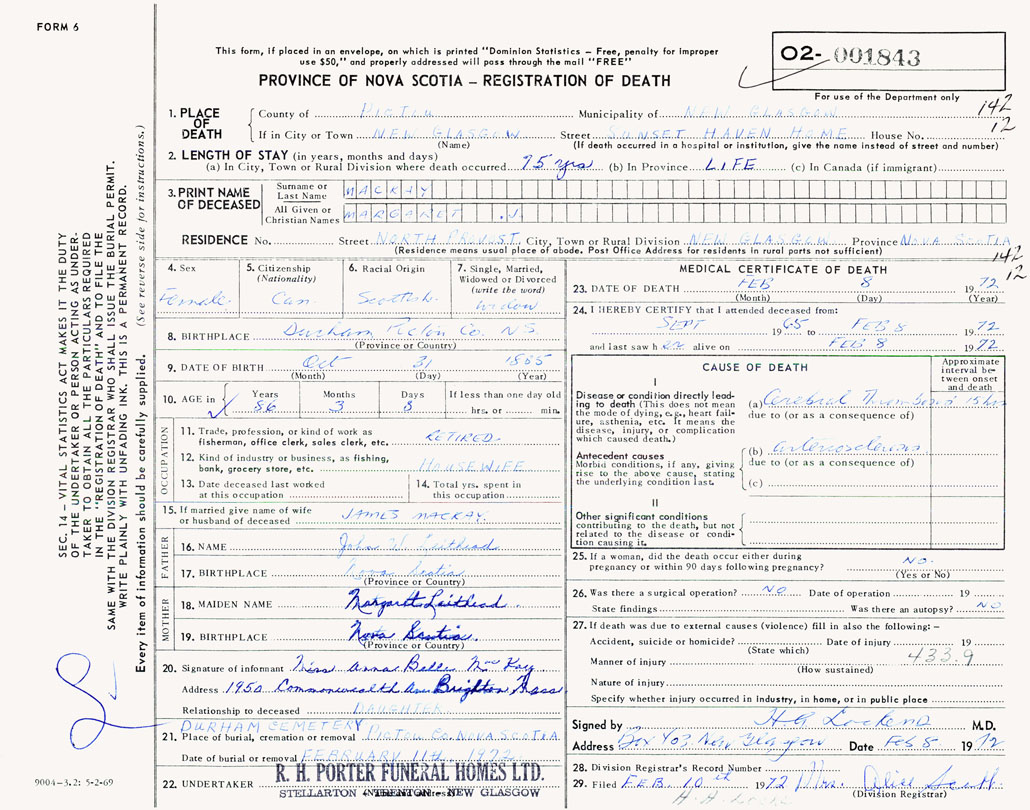 FORM 6
This form, if placed in an envelope, on which is printed "Dominion Statistics – Free, penalty for improper
use $50," and properly addressed will pass through the mail "FREE"
PROVINCE OF NOVA SCOTIA – REGISTRATION OF DEATH
O2- 001843
For use of the Department only
142
12
1. PLACE OF DEATH
County of PICTOU Municipality of NEW GLASGOW
If in City or Town NEW GLASGOW Street SUNSET HAVEN HOME House No.
(Name) (If death occurred in a hospital or institution, give the name instead of street and number)
2. LENGTH OF STAY (in years, months and days)
(a) In City, Town or Rural Division where death occurred 75 yrs (b) In Province LIFE (c) In Canada (if immigrant)
3. PRINT NAME OF DECEASED
Surname or Last Name MACKAY
All Given or Christian Names MARGARET J.
RESIDENCE No. Street NORTH PROVOST City, Town or Rural Division NEW GLASGOW Province NOVA SCOTIA
(Residence means usual place of abode. Post Office Address for residents in rural parts not sufficient)
142
12
4. Sex Female
5. Citizenship (Nationality) Can.
6. Racial Origin Scottish
7. Single, Married, Widowed or Divorced (write the word) Widow
8. BIRTHPLACE Durham Pictou Co. N.S.
(Province or Country)
9. DATE OF BIRTH Oct 31 1885
(Month) (Day) (Year)
10. AGE in Years 86 Months 3 Days 8 If less than one day old hrs. or min.
OCCUPATION
11. Trade, profession or kind of work as fisherman, office clerk, sales clerk, etc. RETIRED
12. Kind of industry or business, as fishing, bank, grocery store, etc. HOUSEWIFE
13. Date deceased last worked at this occupation
14. Total yrs. spent in this occupation
15. If married give name of wife or husband of deceased JAMES MACKAY.
FATHER
16. NAME John W. Leithead
17. BIRTHPLACE Nova Scotia
(Province or Country)
MOTHER
18. MAIDEN NAME Margaret Leithead
19. BIRTHPLACE Nova Scotia.
(Province or Country)
20. Signature of informant Miss Anna Belle MacKay
Address 1950 Commonwealth Ave Brighton Mass
Relationship to deceased DAUGHTER
DURHAM CEMETERY
21. Place of burial, cremation or removal PICTOU CO. NOVA SCOTIA
Date of burial or removal FEBRUARY 11th 1972
22. UNDERTAKER R. H. PORTER FUNERAL HOMES LTD.
STELLARTON NEW GLASGOW
MEDICAL CERTIFICATE OF DEATH
23. DATE OF DEATH FEB 8 1972
(Month) (Day) (Year)
24. I HEREBY CERTIFY that I attended deceased from:
SEPT 1965 to FEB 8 1972
and last saw her alive on FEB 8 1972
CAUSE OF DEATH
Approximate interval between onset and death
I
Disease or condition directly leading to death (This does not mean the mode of dying, e.g., heart failure, asthenia, etc. It means the disease, injury, or complication which caused death.)
(a) Cerebral Thrombosis 15 hrs
due to (or as a consequence of)
Antecedent causes
Morbid conditions, if any, giving rise to the above cause, stating the underlying condition last.
(b) arteriosclerosis
due to (or as a consequence of)
(c)
II
Other significant conditions
contributing to the death, but not related to the disease or condition causing it.
25. If a woman, did the death occur either during pregnancy or within 90 days following pregnancy? NO.
(Yes or No)
26. Was there a surgical operation? NO Date of operation 19
State findings Was there an autopsy? NO
27. If death was due to external causes (violence) fill in also the following: –
Accident, suicide or homicide? Date of injury 19
(State which)
433.9
Manner of injury
(How sustained)
Nature of injury
Specify whether injury occurred in Industry, in home, or in public place
Signed by M.D.
Address Box 403 New Glasgow Date FEB 8. 1972
28. Division Registrar's Record Number
29. Filed FEB. 10th 1972 Mrs. Alice
(Division Registrar)
SEC. 14 – VITAL STATISTICS ACT MAKES IT THE DUTY
OF THE UNDERTAKER OR PERSON ACTING AS UNDER-
TAKER TO OBTAIN ALL THE PARTICULARS REQUIRED
IN THE "REGISTRATION OF DEATH" AND TO FILE THE
SAME WITH THE DIVISION REGISTRAR WHO SHALL ISSUE THE BURIAL PERMIT.
WRITE PLAINLY WITH UNFADING INK. THIS IS A PERMANENT RECORD.
Every item of information should be carefully supplied. (See reverse side for instructions.)
9004-3.2: 5-2-69